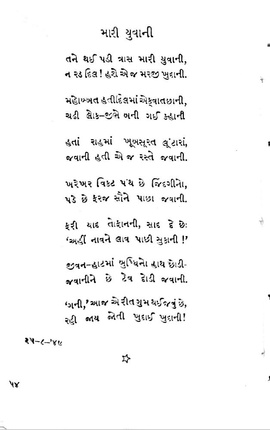 મારી યુવાની
તને થઈ પડી ત્રાસ મારી યુવાની,
ન રડ દિલ! હશે એ જ મરજી ખુદાની.
મહોબ્બત હતી દિલમાં એક વાત છાની,
ચડી લોક-જીભે બની ગઈ કહાની
હતાં રાહમાં ખૂબસૂરત લૂંટારાં,
જવાની હતી એ જ રસ્તે જવાની.
ખરેખર વિકટ પંચ છે જિંદગીનો,
પડે છે ફરજ સૌને પાછા જવાની.
ફરી યાદ તોફાનની, સાદ દે છેઃ
'અહીં નાવને લાવ પાછી સુકાની !'
જીવન-હાટમાં બુધ્ધિનો હાથ છોડી-
જવાનીને છે ટેવ દોડી જવાની.
'ગની,' આજ એ રીત સુમ થઈ જવું છે,
રહી જાય જોતી ખુદાઈ ખુદાની!
૨૫-૮-'૪૯
૫૪